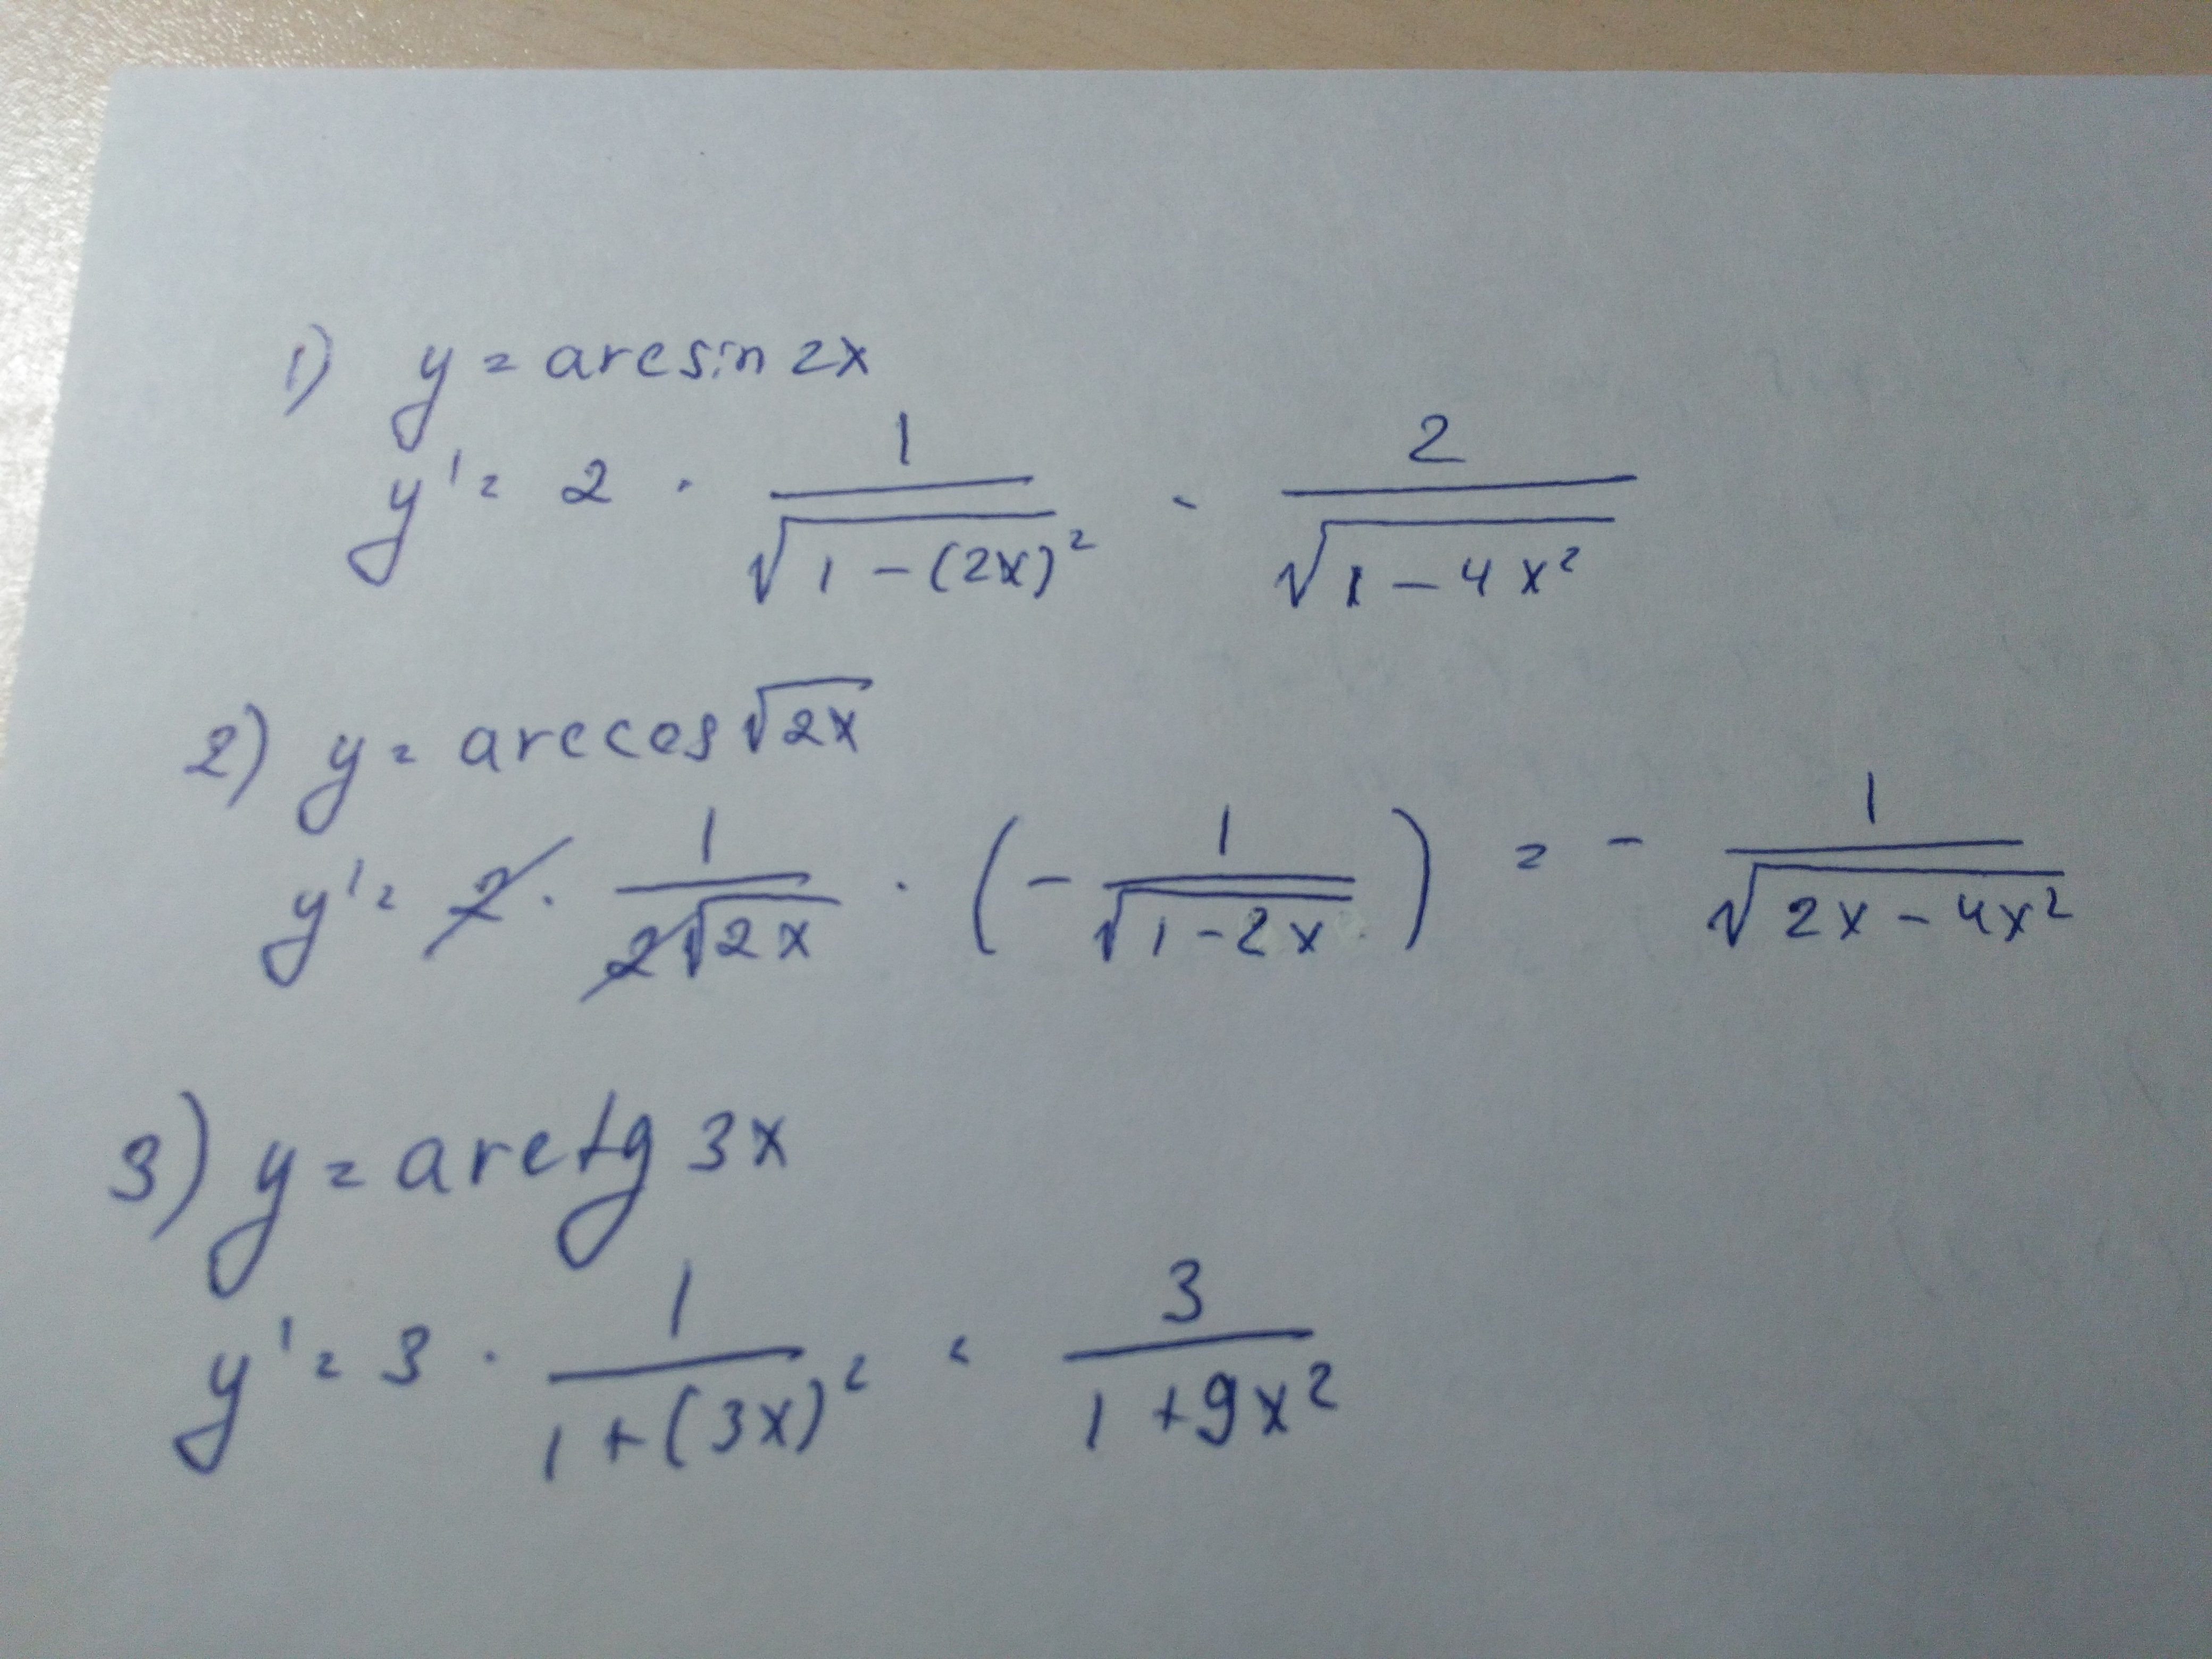 1) y = arcsin 2x
y' = 2 · 1/√(1-(2x)²) = 2/√(1-4x²)
2) y = arccos √(2x)
y' = 2 · 1/(2√(2x)) · (-1/√(1-2x)) = - 1/√(2x-4x²)
3) y = arctg 3x
y' = 3 · 1/(1+(3x)²) = 3/(1+9x²)